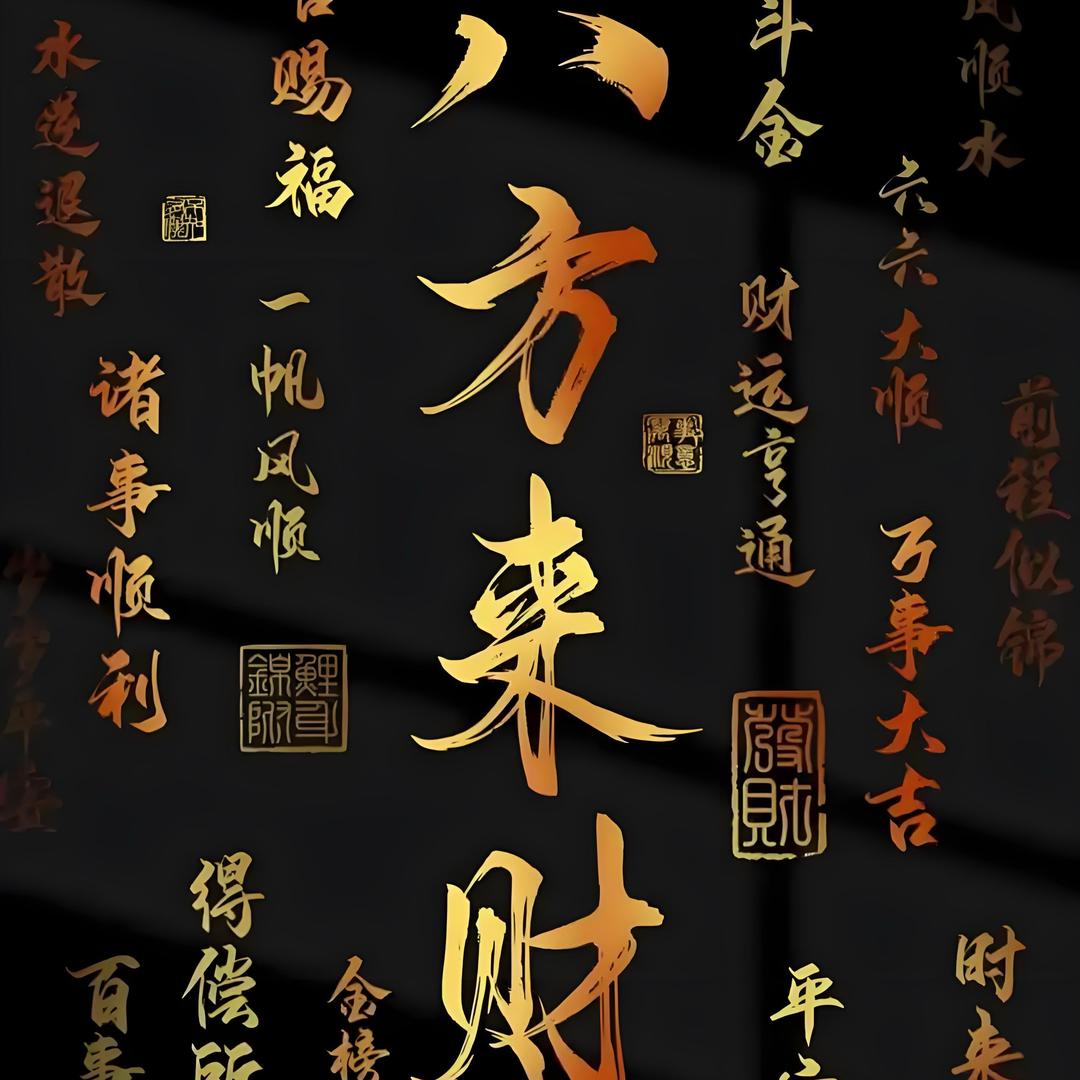 八方来财
水逆退散
赐福
斗金
风顺水
六六大顺
一帆风顺
财运亨通
诸事顺利
前程似锦
万事大吉
岁岁平安
錦鯉附身
發財
得偿所
百事
金榜
平
时来